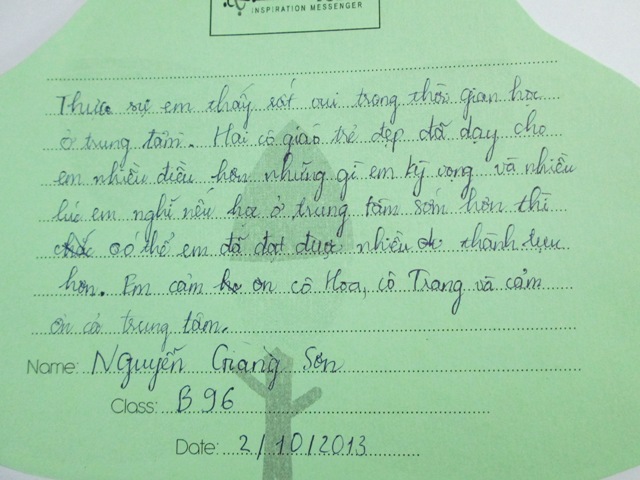 INSPIRATION MESSENGER
Thực sự em thấy rất vui trong thời gian học
ở trung tâm. Hai cô giáo trẻ đẹp đã dạy cho
em nhiều điều hơn những gì em kỳ vọng và nhiều
lúc em nghĩ nếu học ở trung tâm sớm hơn thì
có thể em đã đạt được nhiều thành tựu
hơn. Em cảm ơn cô Hoa, cô Trang và cảm
ơn cả trung tâm.
Name: Nguyễn Giang Sơn
Class: B96
Date: 2/10/2013